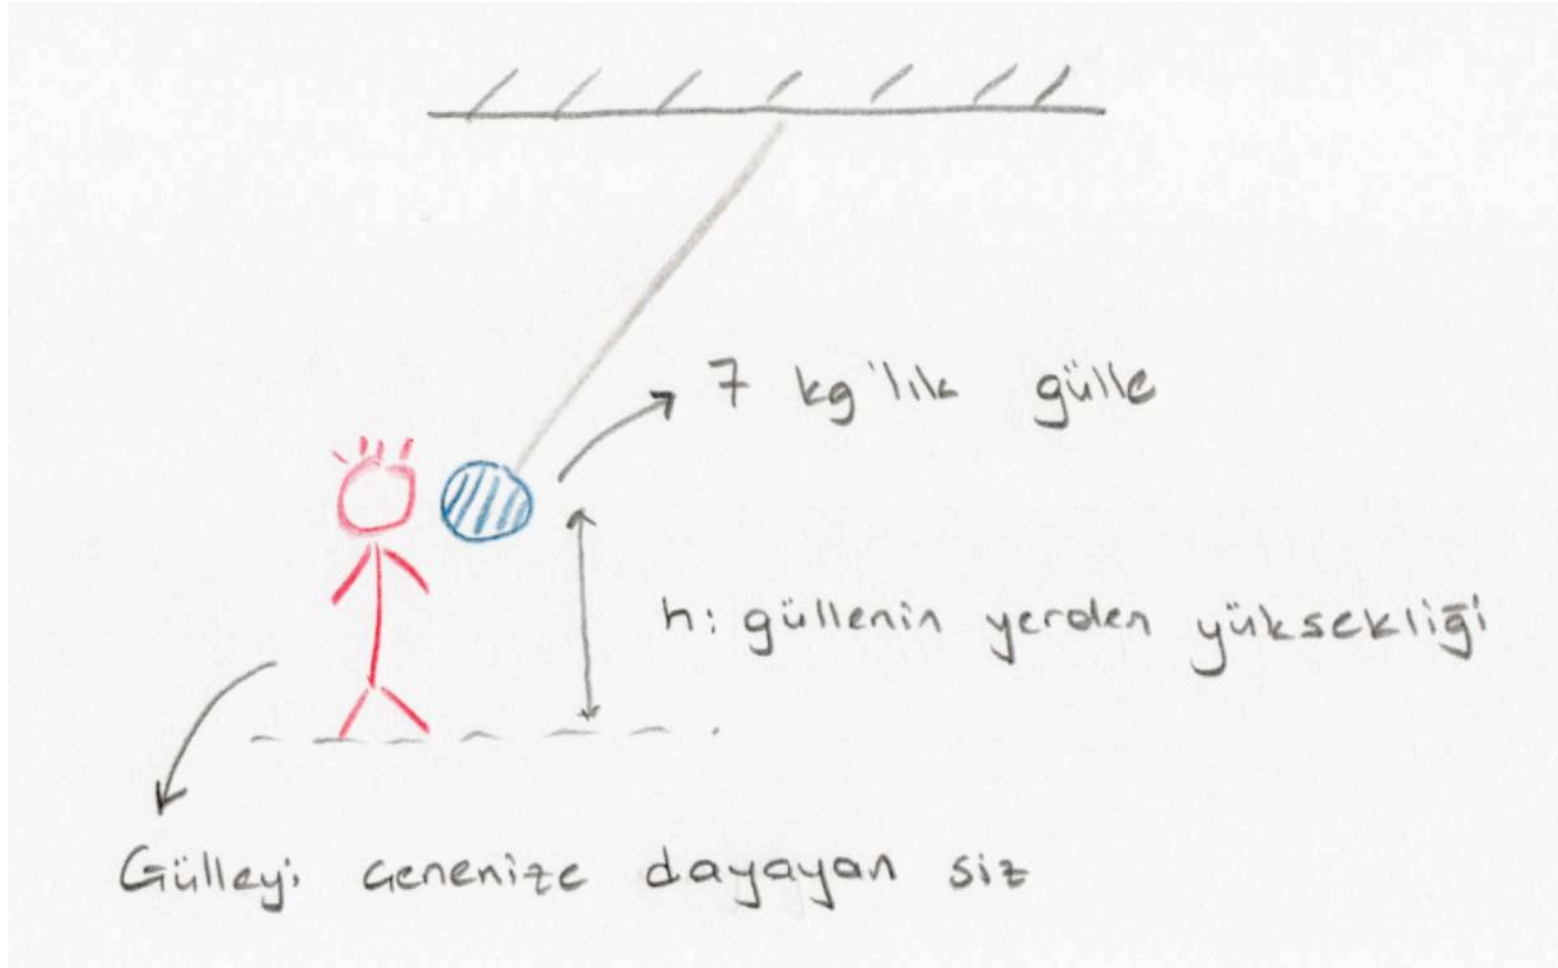 7 kg'lık gülle
h: güllenin yerden yüksekliği
Gülleyi çenenize dayayan siz